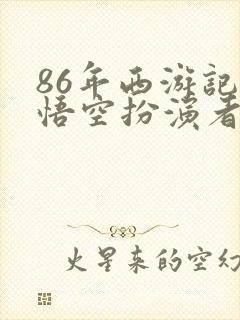 86年西游记
悟空扮演者
火星来的空幻